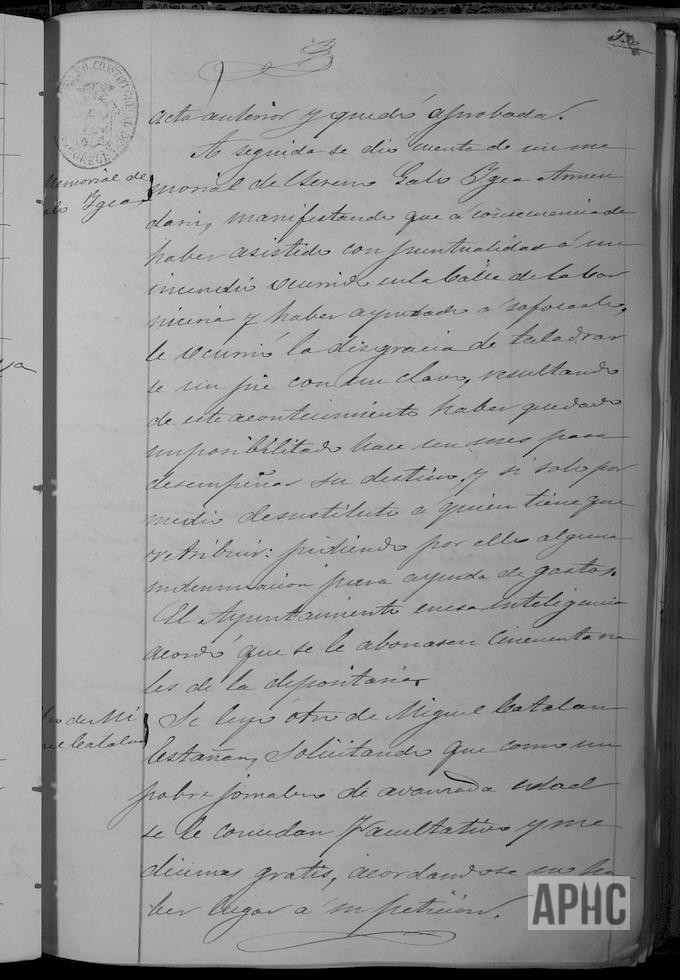 acta anterior y quedó aprobada.
A seguida se dió cuenta de un me
morial del sereno Galo Ygea Armen
dariz, manifestando que á consecuencia de
haber asistido con puntualidad á un
incendio ocurrido en la Calle de la Car
niceria y haber ayudado á sofocarlo,
le ocurrió la disgracia de taladrar
se un pie con un clavo, resultando
de este acontecimiento haber quedado
imposibilitado hace un mes para
desempeñar su destino, y si solo por
medio de sustituto a quien tiene que
retribuir: pidiendo por ello alguna
indemnizacion para ayuda de gastos.
El Ayuntamiento en esa inteligencia
acordó que se le abonasen cincuenta rea
les de la depositaria.
Se leyó otro de Miguel Catalan
Castañar, solicitando que como un
pobre jornalero de avanzada edad
se le concedan Facultativo y me
dicinas gratis, acordandose no ha
ber lugar á su petición.
Memorial de
Galo Ygea
Otro de Mi
guel Catalan
APHC